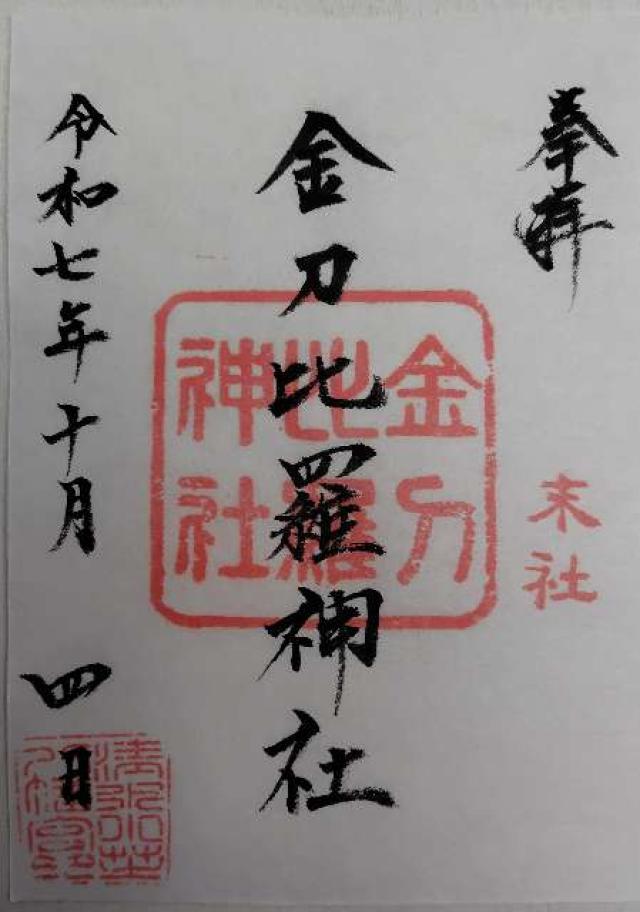 奉拝
末社
金刀比羅神社
金刀
比羅
神社
令和七年十月四日